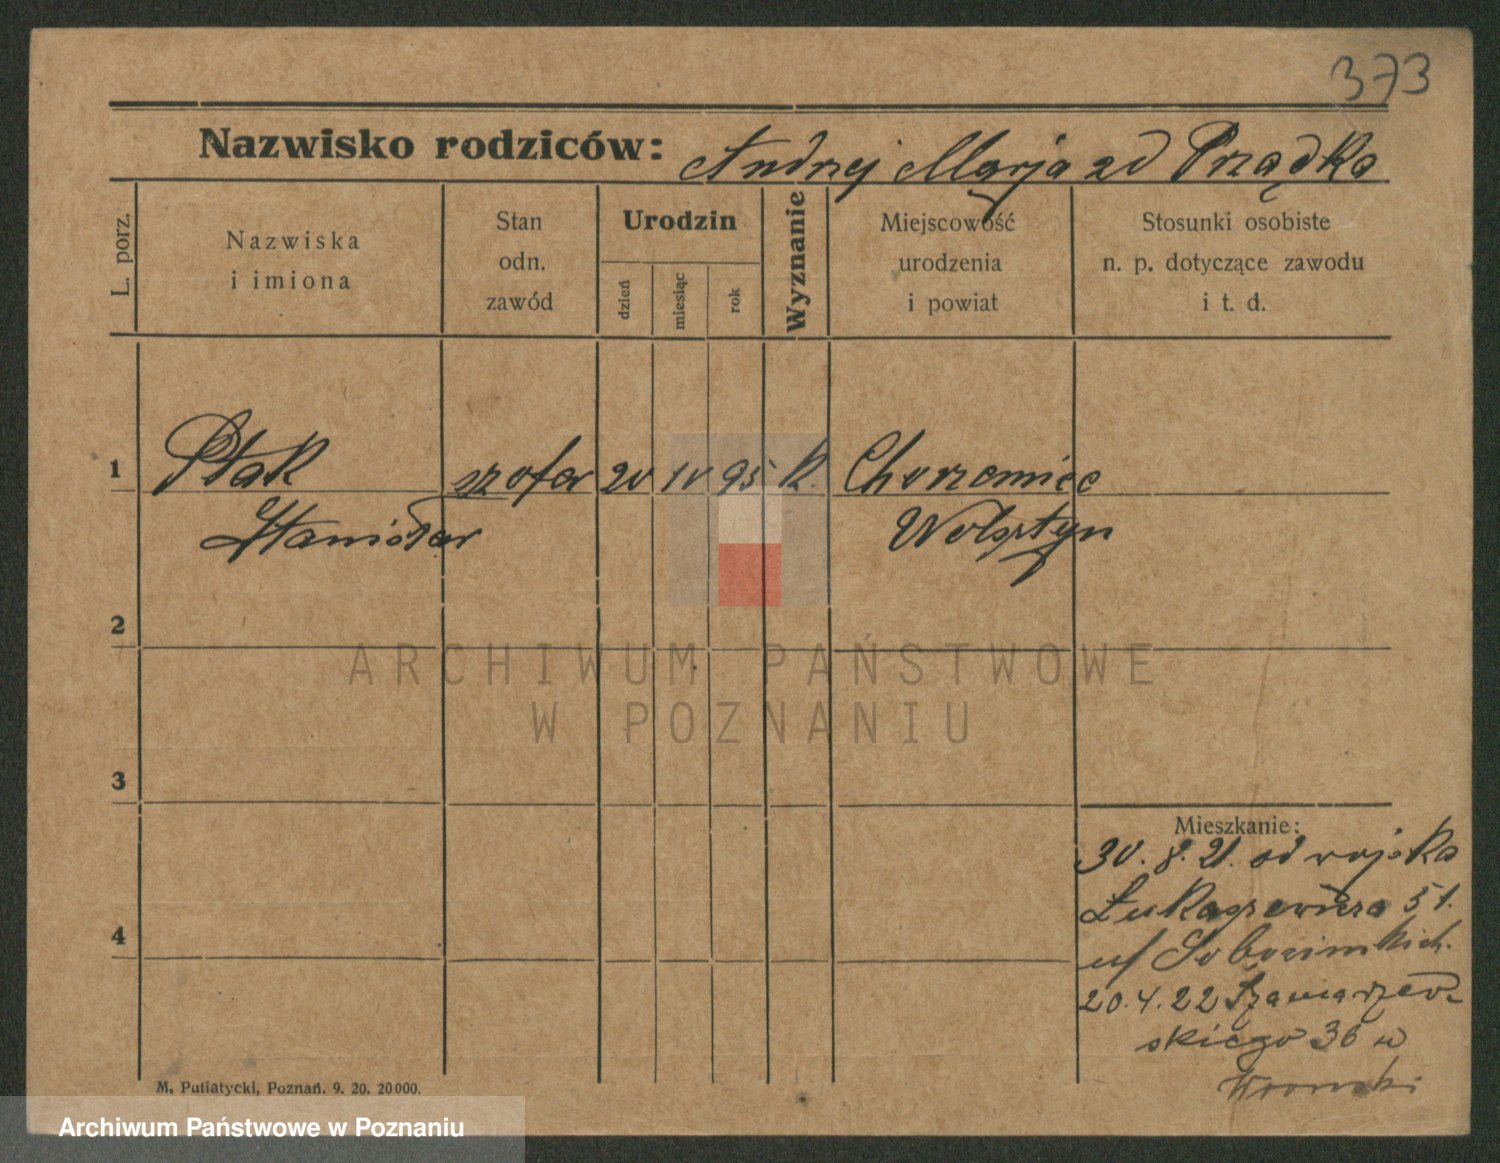 373
Nazwisko rodziców: Andrzej Marja zd Prządka
L. porz.
Nazwiska i imiona
Stan odn. zawód
Urodzin
dzień
miesiąc
rok
Wyznanie
Miejscowość urodzenia i powiat
Stosunki osobiste n. p. dotyczące zawodu i t. d.
1 Ptak szofer 20 IV 95 k. Chorzemiec
Stanisław Wolsztyn
2
ARCHIWUM PAŃSTWOWE
W POZNANIU
3
Mieszkanie:
30. 8. 21. od wojska
Łukaszewicza 51.
u/
4
20. 4. 22
skiego 36 u
M. Putiatycki, Poznań. 9. 20. 20000.
Archiwum Państwowe w Poznaniu